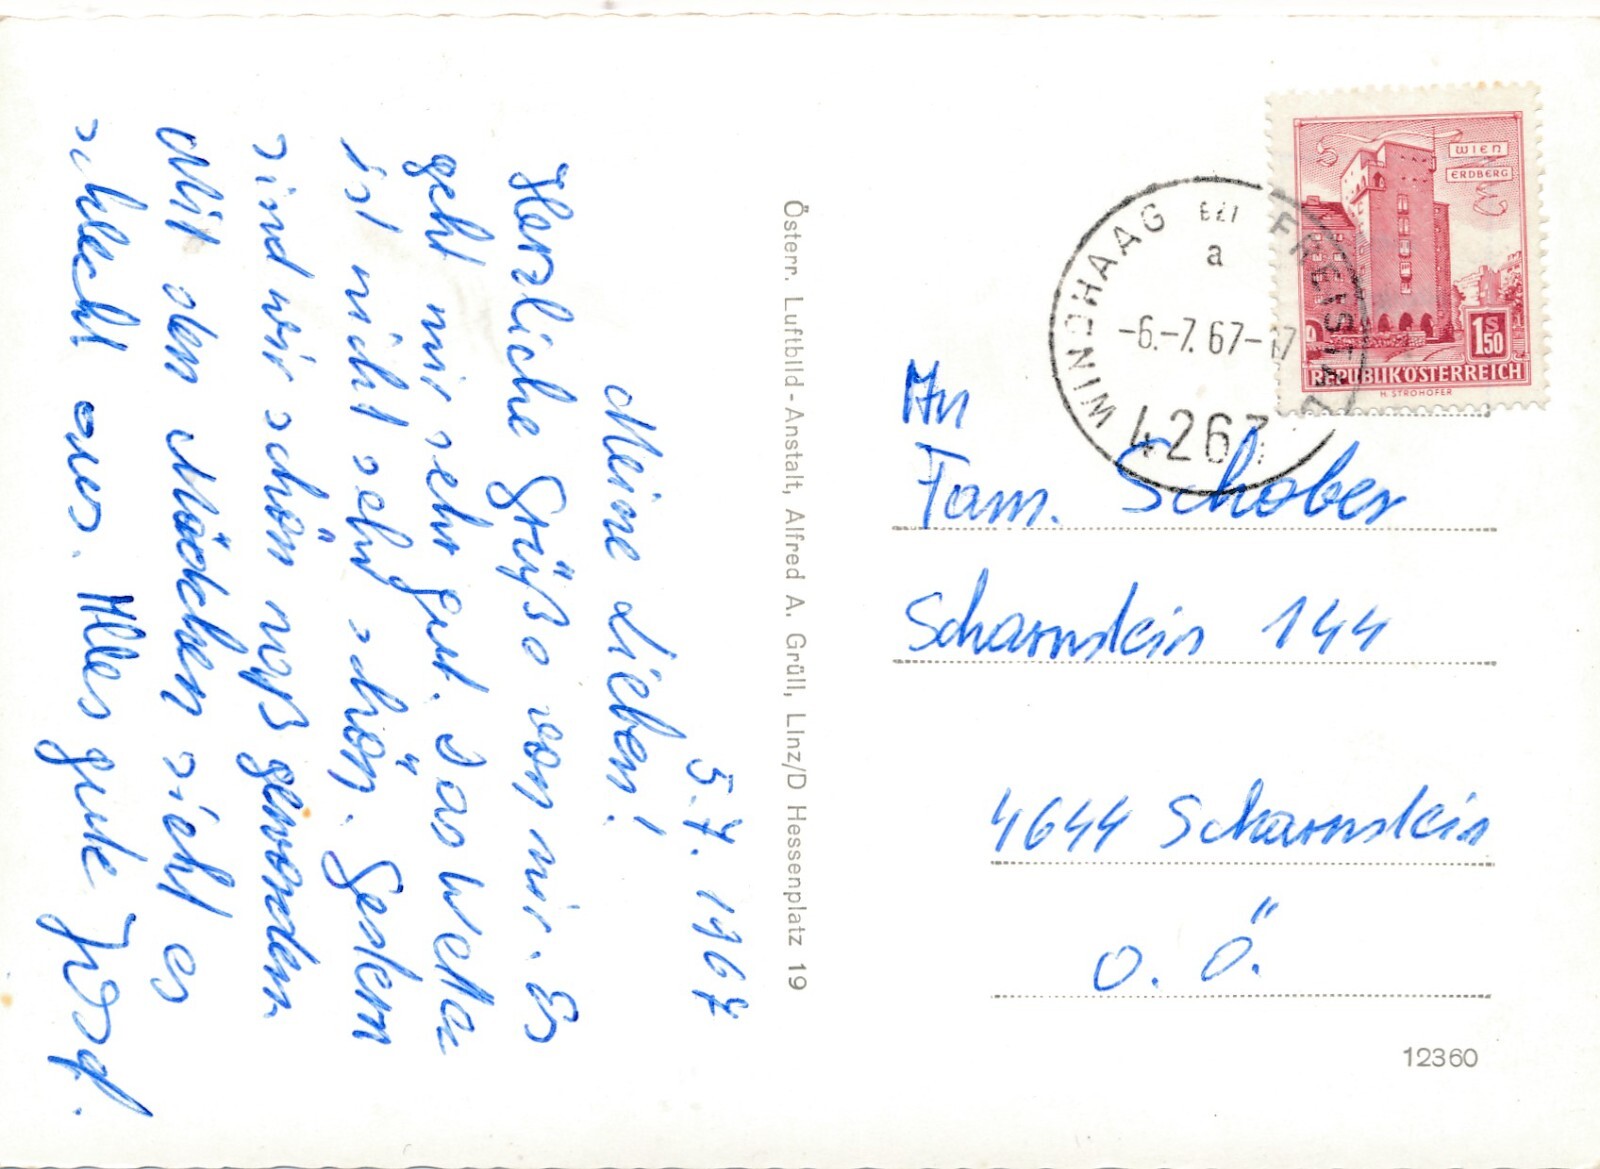 5.7.1967
Meine Lieben!
Herzliche Grüße von mir. Es
geht mir sehr gut. Das Wetter
ist nicht sehr schön. Gestern
sind wir schön naß geworden.
Mit den Mädchen sieht es
schlecht aus. Alles gute Josef.
Österr. Luftbild-Anstalt, Alfred A. Grüll, Linz/D Hessenplatz 19
WIEN
ERDBERG
1S50
REPUBLIK ÖSTERREICH
H. STROHOFER
WINDHAAG BEI FREISTADT
a
-6.-7.67-17
4263
An
Fam. Schober
Scharnstein 144
4644 Scharnstein
O.Ö.
12360